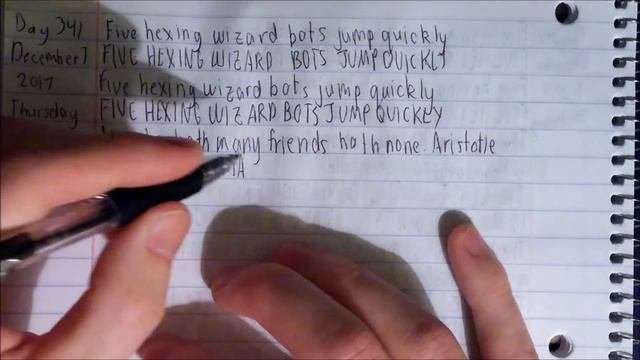 Day 341 Five hexing wizard bots jump quickly
December 7 FIVE HEXING WIZARD BOTS JUMP QUICKLY
2017 Five hexing wizard bots jump quickly
Thursday FIVE HEXING WIZARD BOTS JUMP QUICKLY
hath many friends hath none. Aristotle